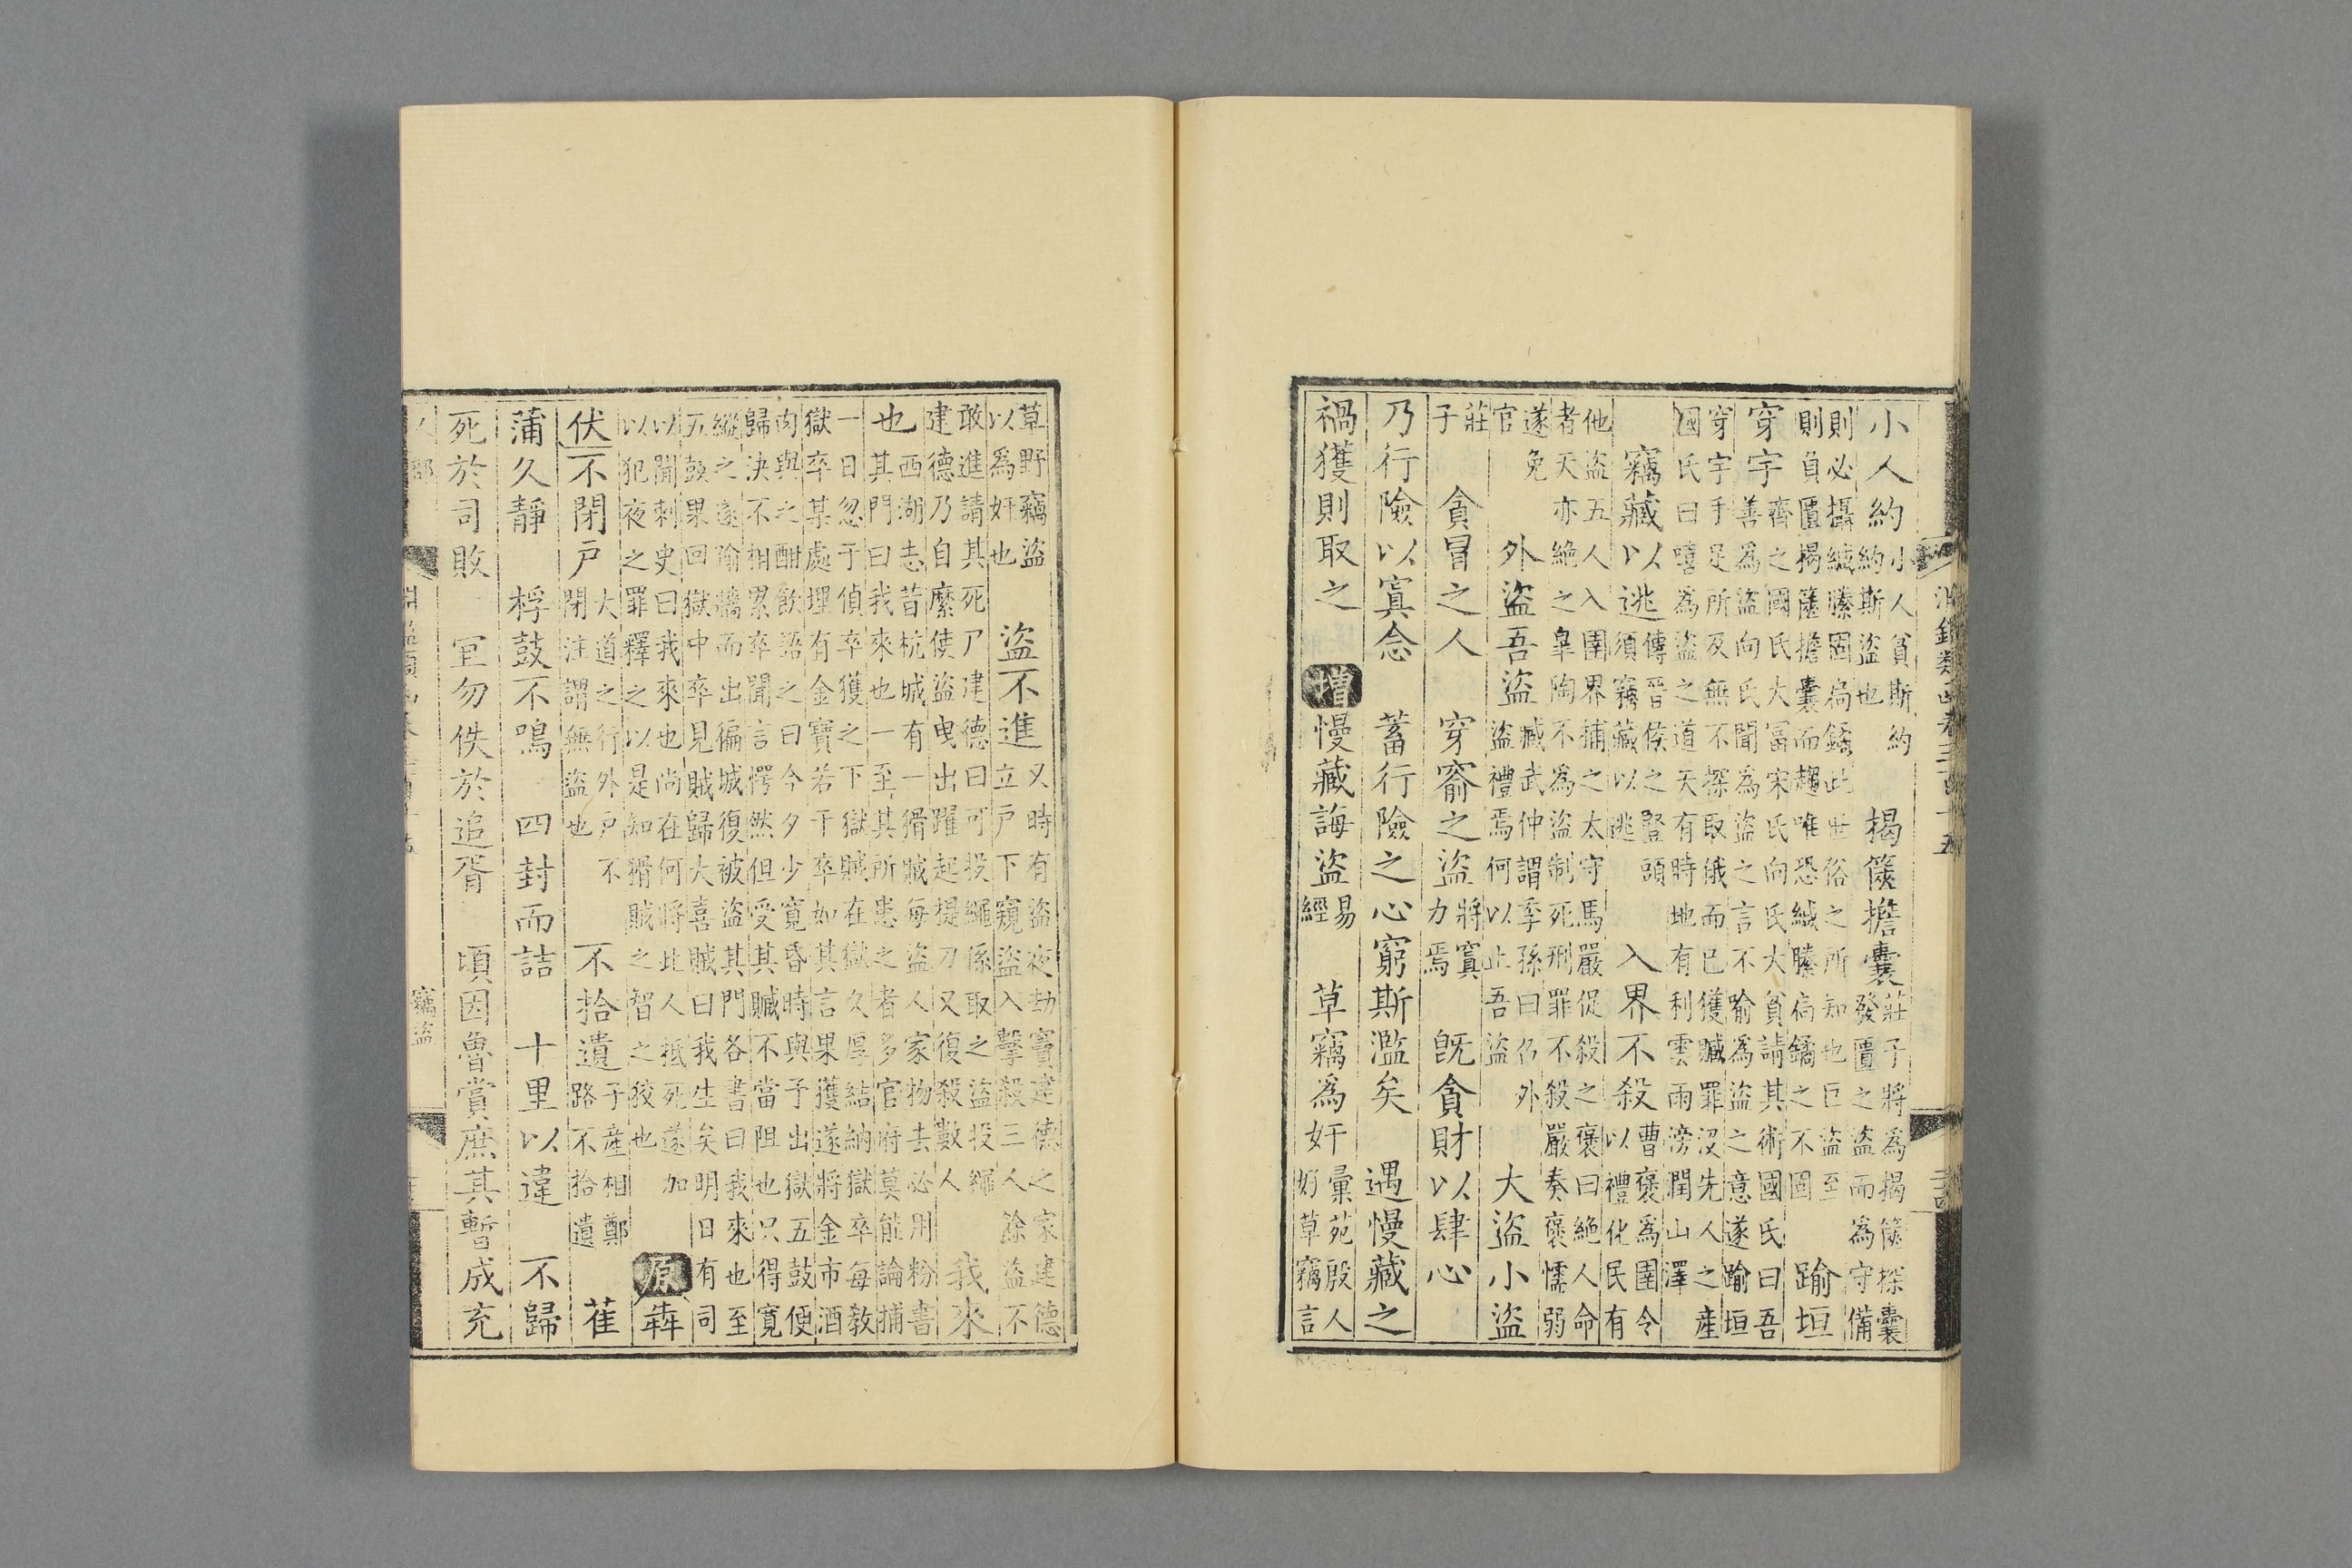 淵鑑類函卷三百十五
小人約小人貧斯約約斯盜也　揭篋擔囊莊子將為揭篋探囊發匱之盜而為守備
則必攝緘縢固扃鐍此世俗之所知也巨盜至則負匱揭篋擔囊而趨唯恐緘縢扃鐍之不固　踰垣
穿宇齊之國氏大富宋氏向氏大貧請其術國氏曰吾善為盜向氏聞為盜之言不喻為盜之意遂踰垣
穿宇手足所及無不探取俄而已獲贓罪沒先人之産國氏曰嘻為盜之道天有時地有利雲雨滂潤山澤
竊藏以逃傳晉侯之豎頭須竊藏以逃　入界不殺曹褒為圉令以禮化民有
他盜五人入圉界捕之太守馬嚴促殺之褒曰絶人命者天亦絶之皐陶不為盜制死刑罪不殺嚴奏褒懦弱
遂免官　外盜吾盜臧武仲謂季孫曰召外盜禮焉何以止吾盜　大盜小盜
莊子　貪冒之人　穿窬之盜將寘力焉　旣貪財以肆心
乃行險以寘念　蓄行險之心窮斯濫矣　遇慢藏之
禍獲則取之　增慢藏誨盜易經　草竊為奸彚苑殷人好草竊言
草野竊盜以為奸也　盜不進又時有盜夜劫竇建德之家建德立戶下窺盜入擊殺三人餘盜不
敢進請其死尸建德曰可投繩係取之盜投繩建德乃自縻使盜曳出躍起提刀又復殺數人　我來
也西湖志昔杭城有一猾賊每盜人家物去必用粉書其門曰我來也一至其所患之者多官府莫能論捕
一日忽于偵卒獲之下獄賊在獄久厚結納獄卒每教獄卒某處埋有金寶若干卒如其言果獲遂將金市酒
肉與之酣飲語之曰今夕少寬昏時與予出獄五鼓便歸決不相累卒聞言愕然但受其贓不當阻也只得寬
縱之遂踰牆而出徧城復被盜其門各書曰我來也至五鼓果回獄中卒見賊歸大喜賊曰我生矣明日有司
以聞刺史曰我來也尚在何將此人抵死遂加以犯夜之罪釋之以是知猾賊之智之狡也　原犇
伏　不閉戶大道之行外戶不閉注謂無盜也　不拾遺子産相鄭路不拾遺　萑
蒲久靜　桴鼓不鳴　四封而詰　十里以違　不歸
死於司敗　冝勿佚於追胥　頃因魯賞庶其暫成充
人部　竊盜